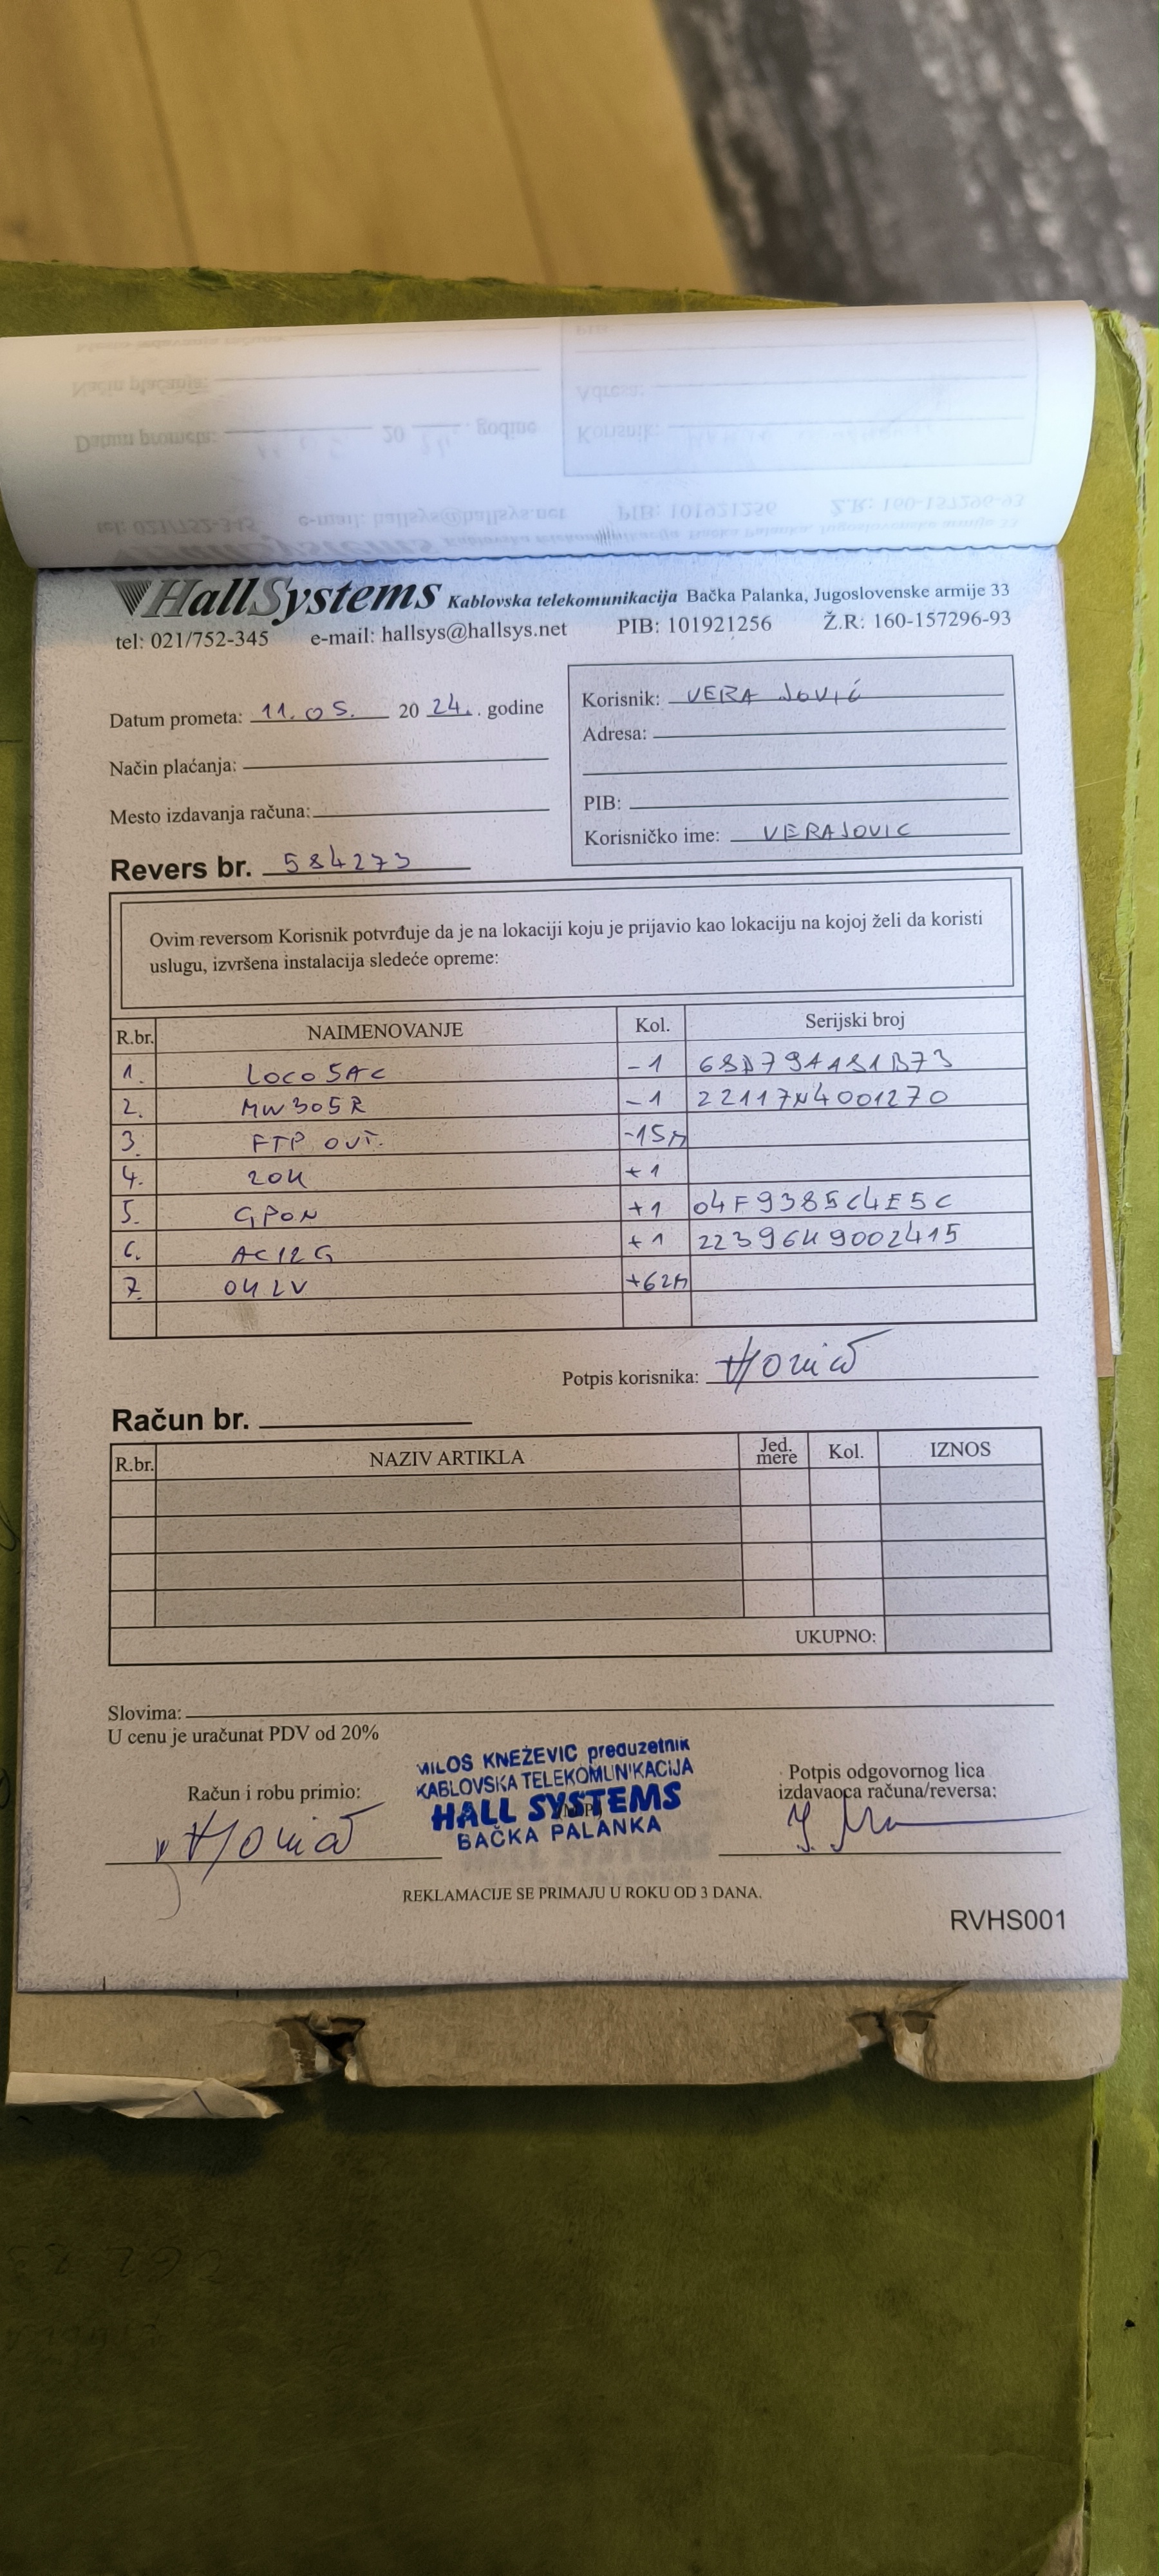 HallSystems Kablovska telekomunikacija Bačka Palanka, Jugoslovenske armije 33
tel: 021/752-345 e-mail: hallsys@hallsys.net PIB: 101921256 Ž.R: 160-157296-93
Datum prometa: 11.05. 20 24. godine
Način plaćanja:
Mesto izdavanja računa:
Korisnik: VERA JOVIĆ
Adresa:
PIB:
Korisničko ime: VERAJOVIC
Revers br. 584273
Ovim reversom Korisnik potvrđuje da je na lokaciji koju je prijavio kao lokaciju na kojoj želi da koristi
uslugu, izvršena instalacija sledeće opreme:
R.br. NAIMENOVANJE Kol. Serijski broj
1. LOCO5AC -1 68D79A181B73
2. MW305R -1 22117N4001270
3. FTP OUT. -15M
4. ZOK +1
5. GPON +1 04F9385C4E5C
6. AC12G +1 22396K9002415
7. O4LV +62M
Potpis korisnika:
Račun br.
R.br. NAZIV ARTIKLA Jed. mere Kol. IZNOS
UKUPNO:
Slovima:
U cenu je uračunat PDV od 20%
Račun i robu primio:
MILOS KNEŽEVIC preduzetnik
KABLOVSKA TELEKOMUNIKACIJA
HALL SYSTEMS
BAČKA PALANKA
Potpis odgovornog lica
izdavaoca računa/reversa:
REKLAMACIJE SE PRIMAJU U ROKU OD 3 DANA.
RVHS001